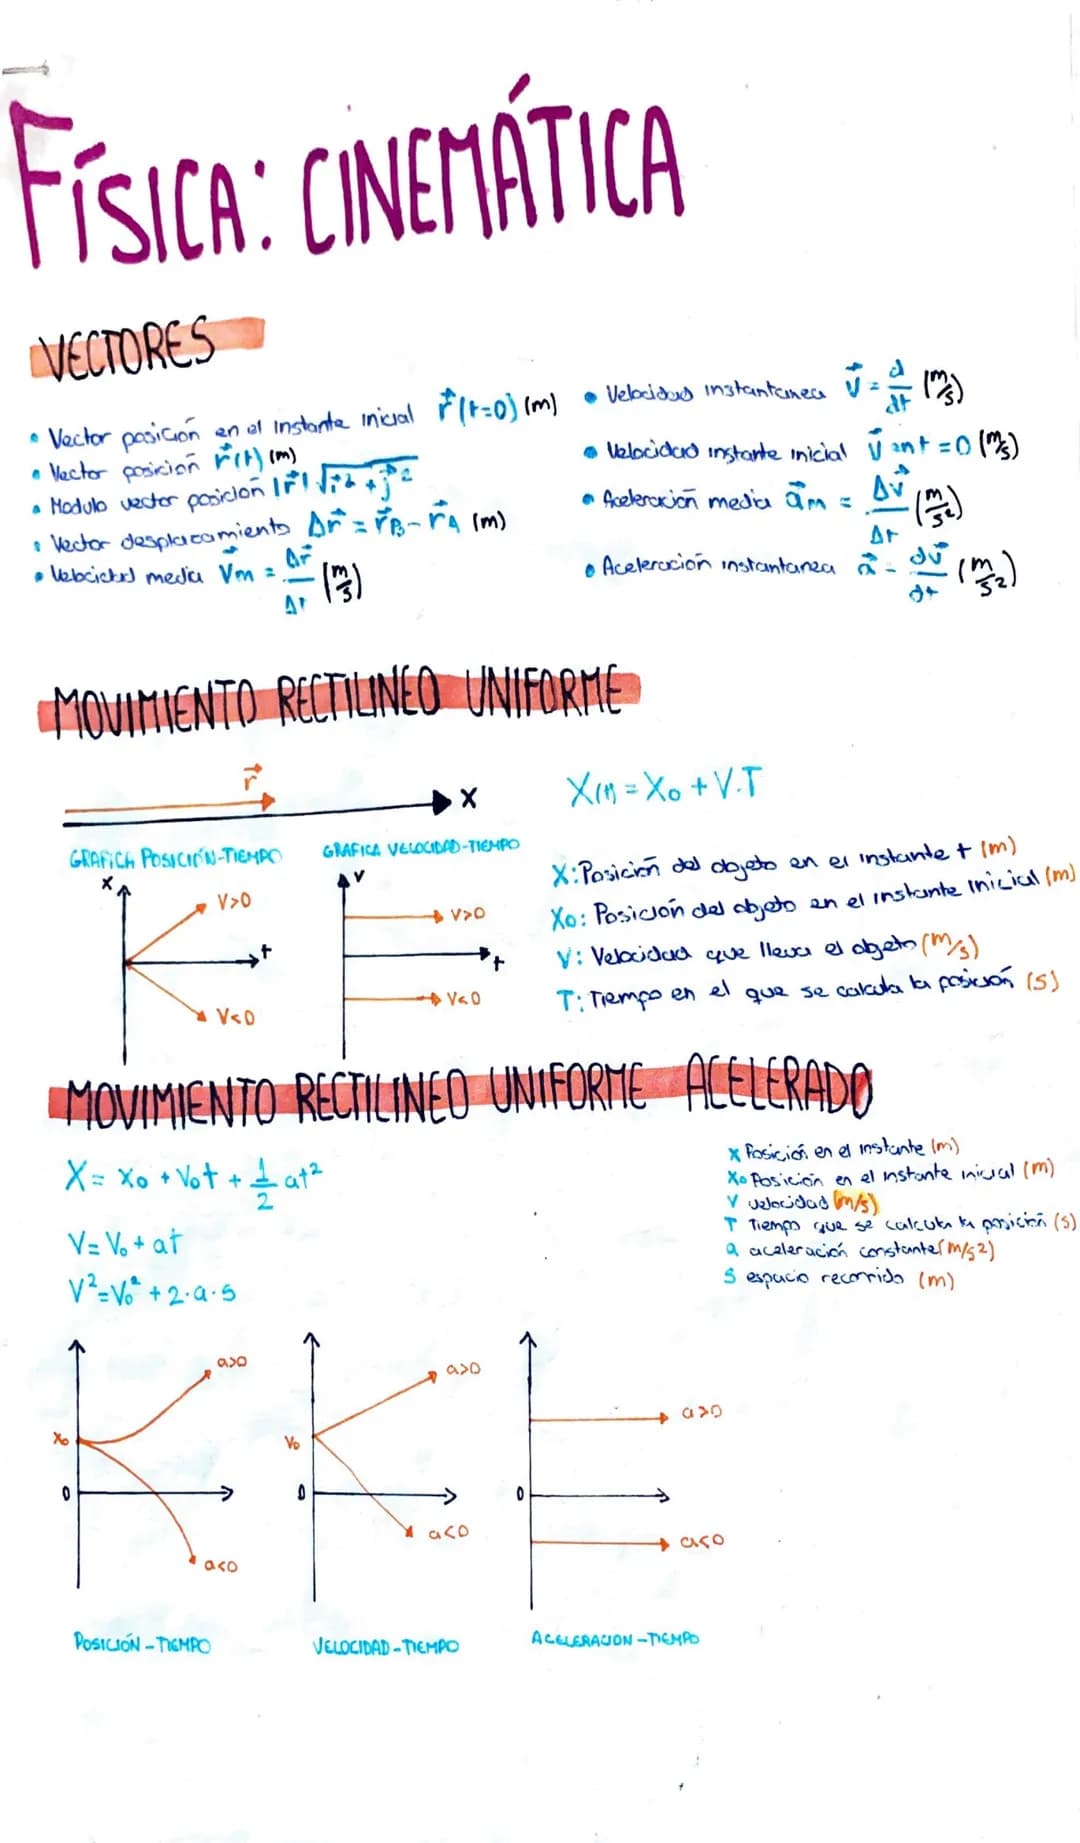 FÍSICA: CINEMÁTICA
VECTORES
• Vector posición en el instante inicial r⃗(t=0) (m)
• Vector posición r⃗(t) (m)
• Modulo vector posición |r⃗| √i²+j²
• Vector desplazamiento Δr⃗ = r⃗B - r⃗A (m)
• Velocidad media V⃗m = Δr⃗/Δt (m/s)
• Velocidad instantanea v⃗ = d/dt (m/s)
• Velocidad instante inicial v⃗ en t = 0 (m/s)
• Aceleración media a⃗m = Δv⃗/Δt (m/s²)
• Aceleración instantanea a⃗ = dv⃗/dt (m/s²)
MOVIMIENTO RECTILINEO UNIFORME
r⃗
X
X(t) = X₀ + V.T
GRAFICA POSICIÓN-TIEMPO
GRAFICA VELOCIDAD-TIEMPO
X
V>0
t
V<0
V
V>0
t
V<0
X: Posición del objeto en el instante t (m)
X₀: Posición del objeto en el instante inicial (m)
V: Velocidad que lleva el objeto (m/s)
T: Tiempo en el que se calcula la posición (s)
MOVIMIENTO RECTILINEO UNIFORME ACELERADO
X = X₀ + V₀t + 1/2 at²
V = V₀ + at
V² = V₀² + 2·a·s
X Posición en el instante (m)
X₀ Posición en el instante inicial (m)
V velocidad (m/s)
T Tiempo que se calcula la posición (s)
a aceleración constante (m/s2)
S espacio recorrido (m)
a>0
X₀
0
a<0
a>0
V₀
0
a<0
a>0
0
a<0
POSICIÓN-TIEMPO
VELOCIDAD-TIEMPO
ACELERACION-TIEMPO